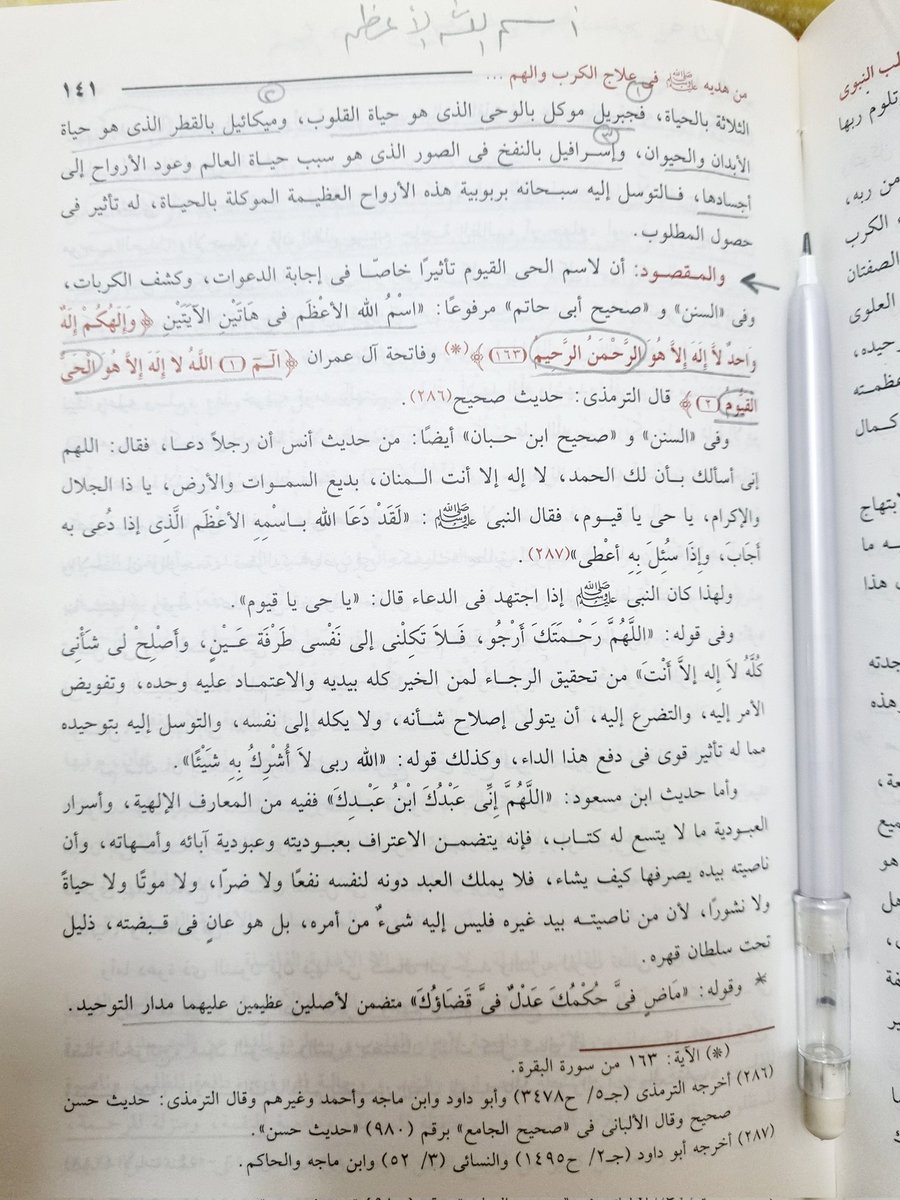 اسم الله الأعظم
من هديه ﷺ فى علاج الكرب والهم ... ١٤١
الثلاثة بالحياة، فجبريل موكل بالوحى الذى هو حياة القلوب، وميكائيل بالقطر الذى هو حياة
الأبدان والحيوان، وإسرافيل بالنفخ فى الصور الذى هو سبب حياة العالم وعود الأرواح إلى
أجسادها، فالتوسل إليه سبحانه بربوبية هذه الأرواح العظيمة الموكلة بالحياة، له تأثير فى
حصول المطلوب.
والمقصود: أن لاسم الحى القيوم تأثيرًا خاصّا فى إجابة الدعوات، وكشف الكربات،
وفى «السنن» و «صحيح أبى حاتم» مرفوعًا: «اسْمُ الله الأعْظَم فى هَاتَيْنِ الآيَتَيْنِ ﴿وَإِلَهُكُمْ إِلَهٌ
وَاحدٌ لاَّ إِلَهَ إِلاَّ هُوَ الرَّحْمَنُ الرَّحِيم (١٦٣)﴾(*) وفاتحة آل عمران ﴿الـمَ (١) اللَّهُ لا إِلَهَ إِلاَّ هُوَ الْحَىُّ
القَيُّوم (٢)﴾ قال الترمذى: حديث صحيح(٢٨٦).
وفى «السنن» و «صحيح ابن حبان» أيضًا: من حديث أنس أن رجلاً دعا، فقال: اللهم
إنى أسألك بأن لك الحمد، لا إله إلا أنت المنان، بديع السموات والأرض، يا ذا الجلال
والإكرام، يا حى يا قيوم، فقال النبى ﷺ: «لَقَدْ دَعَا الله باسْمِهِ الأعْظَم الَّذِى إذا دُعى به
أَجَابَ، وإِذَا سُئِلَ بِهِ أعْطَى»(٢٨٧).
ولهذا كان النبى ﷺ إذا اجتهد فى الدعاء قال: «يا حى يا قيوم».
وفى قوله: «اللَّهُمَّ رَحْمَتَكَ أَرْجُو، فَلاَ تَكِلْنى إلى نَفْسى طَرْفَة عَيْنٍ، وأَصْلِحْ لى شَأْنِى
كُلَّهُ لاَ إِله إلاَّ أَنْتَ» من تحقيق الرجاء لمن الخير كله بيديه والاعتماد عليه وحده، وتفويض
الأمر إليه، والتضرع إليه، أن يتولى إصلاح شأنه، ولا يكله إلى نفسه، والتوسل إليه بتوحيده
مما له تأثير قوى فى دفع هذا الداء، وكذلك قوله: «الله ربى لاَ أُشْرِكُ بِهِ شَيْئًا».
وأما حديث ابن مسعود: «اللَّهُمَّ إِنِّى عَبْدُكَ ابْنُ عَبْدِكَ» ففيه من المعارف الإلهية، وأسرار
العبودية ما لا يتسع له كتاب، فإنه يتضمن الاعتراف بعبوديته وعبودية آبائه وأمهاته، وأن
ناصيته بيده يصرفها كيف يشاء، فلا يملك العبد دونه لنفسه نفعًا ولا ضرّا، ولا موتًا ولا حياةً
ولا نشورًا، لأن من ناصيته بيد غيره فليس إليه شىءٌ من أمره، بل هو عانٍ فى قبضته، ذليل
تحت سلطان قهره.
* وقوله: «مَاضٍ فىَّ حُكْمُكَ عَدْلٌ فىَّ قَضَاؤُكَ» متضمن لأصلين عظيمين عليهما مدار التوحيد.
(*) الآية: ١٦٣ من سورة البقرة.
(٢٨٦) أخرجه الترمذى (جـ٥/ ح٣٤٧٨) وأبو داود وابن ماجه وأحمد وغيرهم وقال الترمذى: حديث حسن
صحيح وقال الألبانى فى «صحيح الجامع» برقم (٩٨٠) «حديث حسن».
(٢٨٧) أخرجه أبو داود (جـ٢/ ح١٤٩٥) والنسائى (٣/ ٥٢) وابن ماجه والحاكم.
لب النبوى
تلوم ربها
من ربه،
الكرب
الصفتان
العلوى
عظمته
كمال
ه ما
هذا
جدته
وهذه
هو